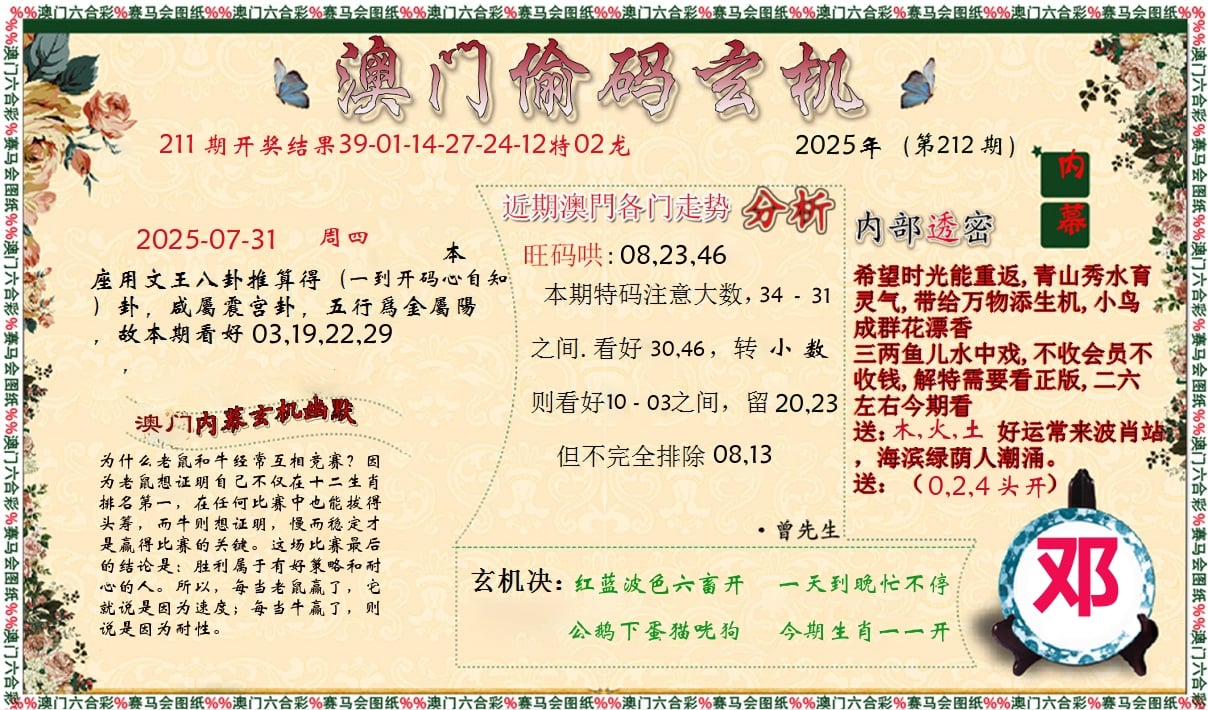 %%澳门六合彩%赛马会图纸%%澳门六合彩%赛马会图纸%%澳门六合彩%赛马会图纸%%澳门六合彩%赛马会图纸%%澳门六合彩%赛马会图纸%%澳门六合彩%赛马会图纸%%
澳门偷码玄机
211 期开奖结果39-01-14-27-24-12特02龙
2025年（第212 期）
内幕
2025-07-31 周四
本
座用文王八卦推算得（一到开码心自知
）卦，咸屬震宫卦，五行爲金屬陽
，故本期看好 03,19,22,29
，
澳门内幕玄机幽默
为什么老鼠和牛经常互相竞赛？因
为老鼠想证明自己不仅在十二生肖
排名第一，在任何比赛中也能拔得
头筹，而牛则想证明，慢而稳定才
是赢得比赛的关键。这场比赛最后
的结论是：胜利属于有好策略和耐
心的人。所以，每当老鼠赢了，它
就说是因为速度；每当牛赢了，则
说是因为耐性。
近期澳門各门走势 分析
旺码哄: 08,23,46
本期特码注意大数, 34 - 31
之间. 看好 30,46，转 小 数
则看好10 - 03之间，留 20,23
但不完全排除 08,13
·曾先生
内部透密
希望时光能重返, 青山秀水育
灵气, 带给万物添生机, 小鸟
成群花漂香
三两鱼儿水中戏, 不收会员不
收钱, 解特需要看正版, 二六
左右今期看
送: 木,火,土 好运常来波肖站
，海滨绿荫人潮涌。
送: （0,2,4 头开）
邓
玄机决: 红蓝波色六畜开 一天到晚忙不停
公鹅下蛋猫咣狗 今期生肖一一开
%%澳门六合彩%赛马会图纸%%澳门六合彩%赛马会图纸%%澳门六合彩%赛马会图纸%%澳门六合彩%赛马会图纸%%澳门六合彩%赛马会图纸%%澳门六合彩%赛马会图纸%%